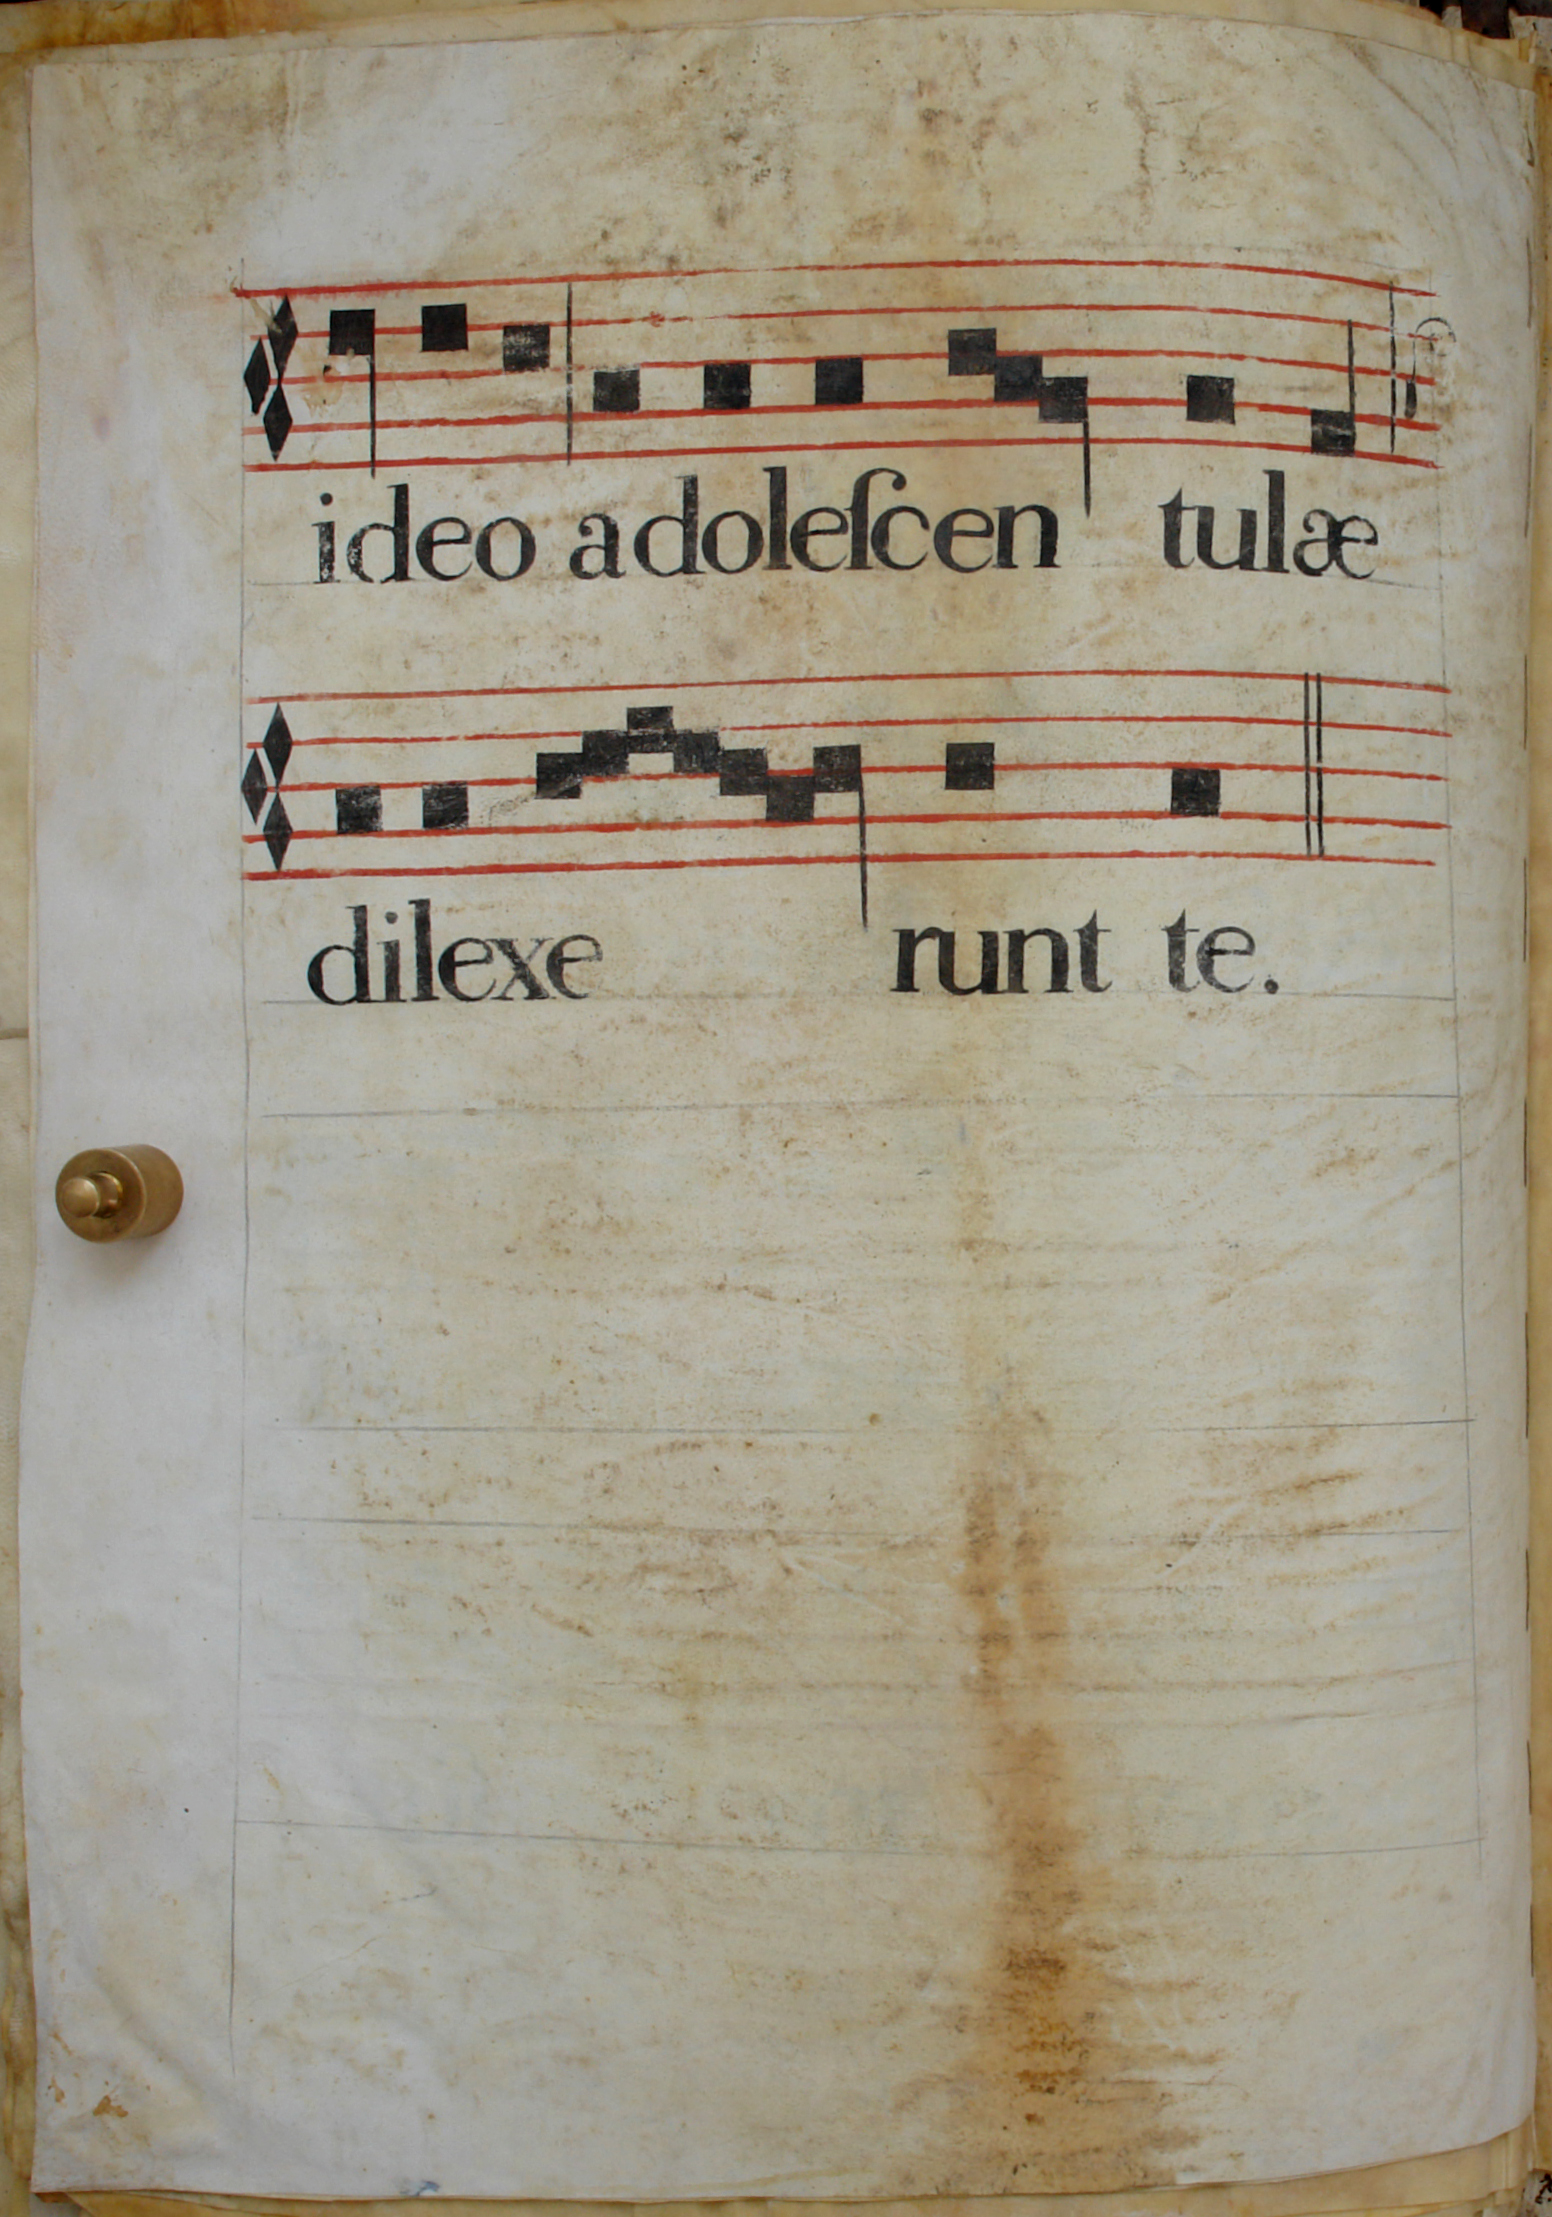 ideo adoleſcen tulæ
dilexe runt te.